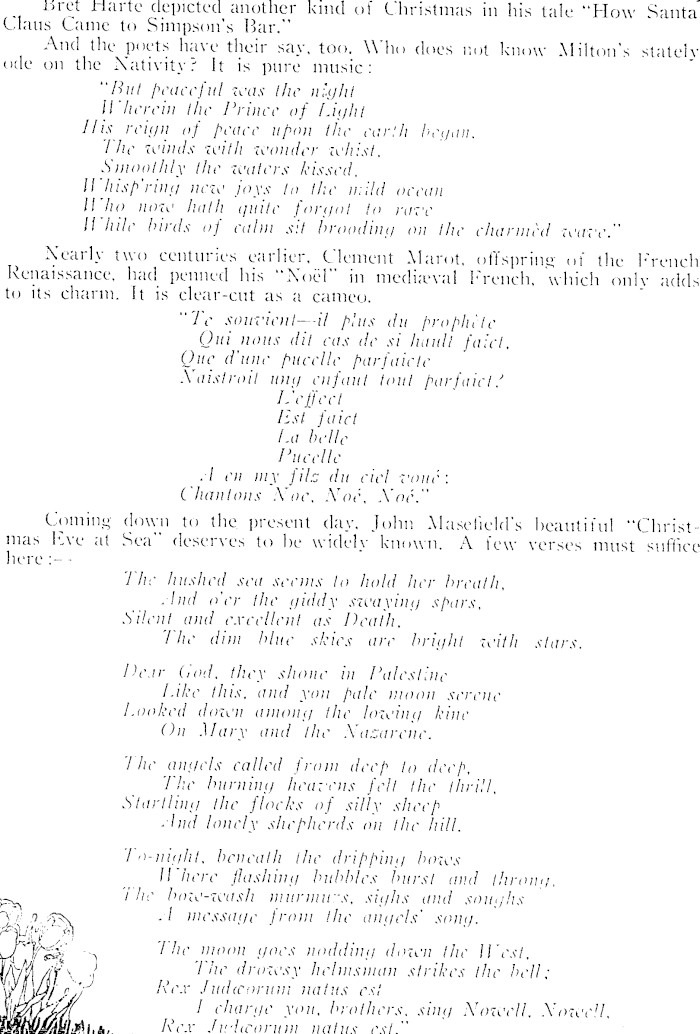 Bret Harte depicted another kind of Christmas in his tale "How Santa
Claus Came to Simpson's Bar."
And the poets have their say, too. Who does not know Milton's stately
ode on the Nativity? It is pure music:
"But peaceful was the night
Wherein the Prince of Light
His reign of peace upon the earth began.
The winds with wonder whist,
Smoothly the waters kissed,
Whisp'ring new joys to the mild ocean
Who now hath quite forgot to rave
While birds of calm sit brooding on the charmèd wave."
Nearly two centuries earlier, Clement Marot, offspring of the French
Renaissance, had penned his "Noël" in mediæval French, which only adds
to its charm. It is clear-cut as a cameo.
"Te souvient—il plus du prophète
Qui nous dit cas de si hault faict,
Que d'une pucelle parfaicte
Naistroit ung enfaut tout parfaict?
L'effect
Est faict
La belle
Pucelle
A en my filz du ciel voué:
Chantons Noe, Noé, Noé."
Coming down to the present day, John Masefield's beautiful "Christ-
mas Eve at Sea" deserves to be widely known. A few verses must suffice
here:—
The hushed sea seems to hold her breath,
And o'er the giddy swaying spars,
Silent and excellent as Death,
The dim blue skies are bright with stars.
Dear God, they shone in Palestine
Like this, and you pale moon serene
Looked down among the lowing kine
On Mary and the Nazarene.
The angels called from deep to deep,
The burning heavens felt the thrill,
Startling the flocks of silly sheep
And lonely shepherds on the hill.
To-night, beneath the dripping bows
Where flashing bubbles burst and throng,
The bow-wash murmurs, sighs and soughs
A message from the angels' song.
The moon goes nodding down the West,
The drowsy helmsman strikes the bell;
Rex Judæorum natus est
I charge you, brothers, sing Nowell, Nowell,
Rex Judæorum natus est."